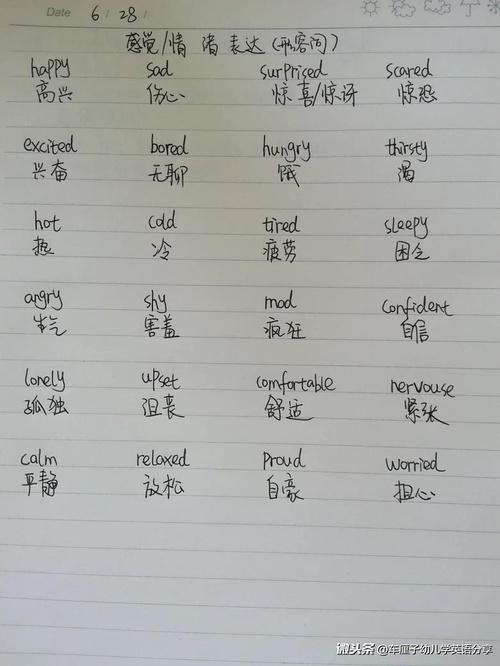 Date 6 / 28 /
感觉/情绪表达(形容词)
happy sad surprised scared
高兴 伤心 惊喜/惊讶 惊恐
excited bored hungry thirsty
兴奋 无聊 饿 渴
hot cold tired sleepy
热 冷 疲劳 困乏
angry shy mad confident
生气 害羞 疯狂 自信
lonely upset comfortable nervouse
孤独 沮丧 舒适 紧张
calm relaxed proud worried
平静 放松 自豪 担心
微头条/@车厘子幼儿学英语分享